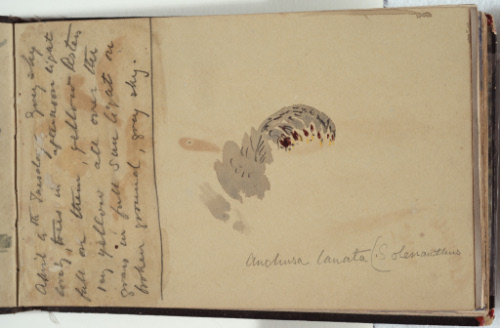 April 4th Tansloht grey sky
long trees in afternoon light
full on them, yellow listen
ing yellow all over the
grass in full sun light on
broken ground, grey sky.
Anchusa lanata (Solenanthus